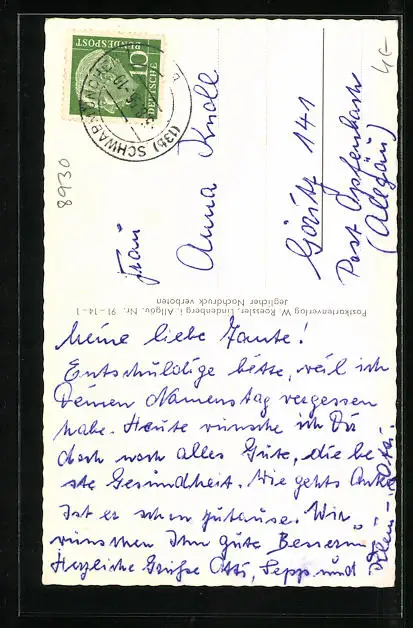 DEUTSCHE
BUNDESPOST
10
(13b) SCHWABMÜNCHEN
8930
4€
Frau
Anna Knoll
Göritz 141
Post Opfenbach
(Allgäu)
Postkartenverlag W. Roessler, Lindenberg i. Allgäu. Nr. 91–14–1
Jeglicher Nachdruck verboten
Meine liebe Tante!
Entschuldige bitte, weil ich
Deinen Namenstag vergessen
habe. Heute wünsche ich Dir
doch noch alles Gute, die be
ste Gesundheit. Wie gehts
Ist er schon zuhause. Wir
wünschen Ihm gute Besserung
Herzliche Grüße Otti, Sepp und
Klein-Otti